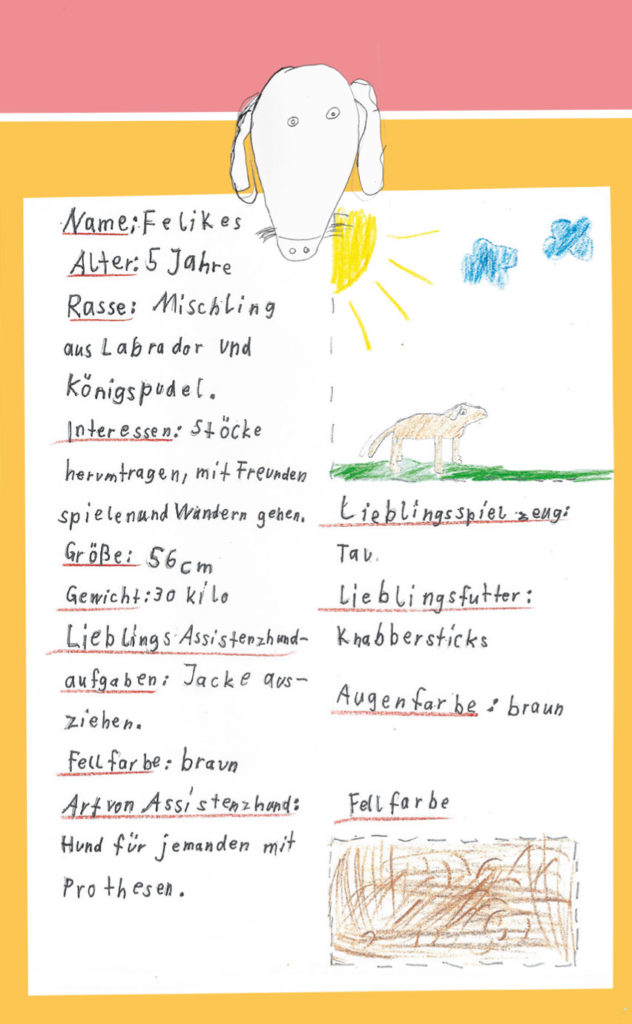 Name: Felikes
Alter: 5 Jahre
Rasse: Mischling
aus Labrador und
Königspudel.
Interessen: Stöcke
herumtragen, mit Freunden
spielen und Wandern gehen.
Größe: 56 cm
Gewicht: 30 kilo
Lieblings Assistenzhund-
aufgaben: Jacke aus-
ziehen.
Fellfarbe: braun
Art von Assistenzhund:
Hund für jemanden mit
Prothesen.
Lieblingsspielzeug:
Tau.
Lieblingsfutter:
Knabbersticks
Augenfarbe: braun
Fellfarbe